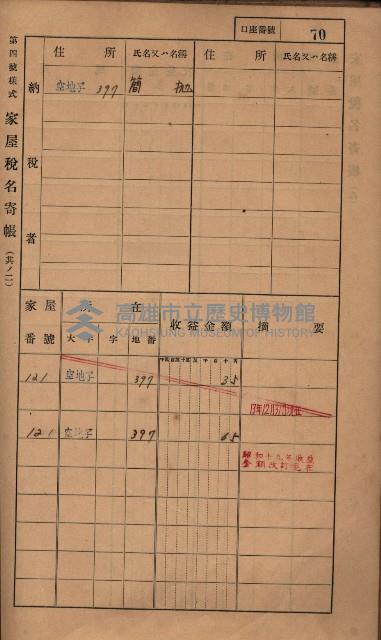 口座番號 70
第四號樣式 家屋稅名寄帳 (其ノ二)
納稅者
住所 氏名又ハ名稱 住所 氏名又ハ名稱
空地子 397 簡
家屋番號 所在 收益金額 摘要
大字 字 地番
高雄市立歷史博物館
KAOHSIUNG MUSEUM OF HISTORY
121 空地子 397 35
121 空地子 397 65
昭和十九年收益
金額改訂